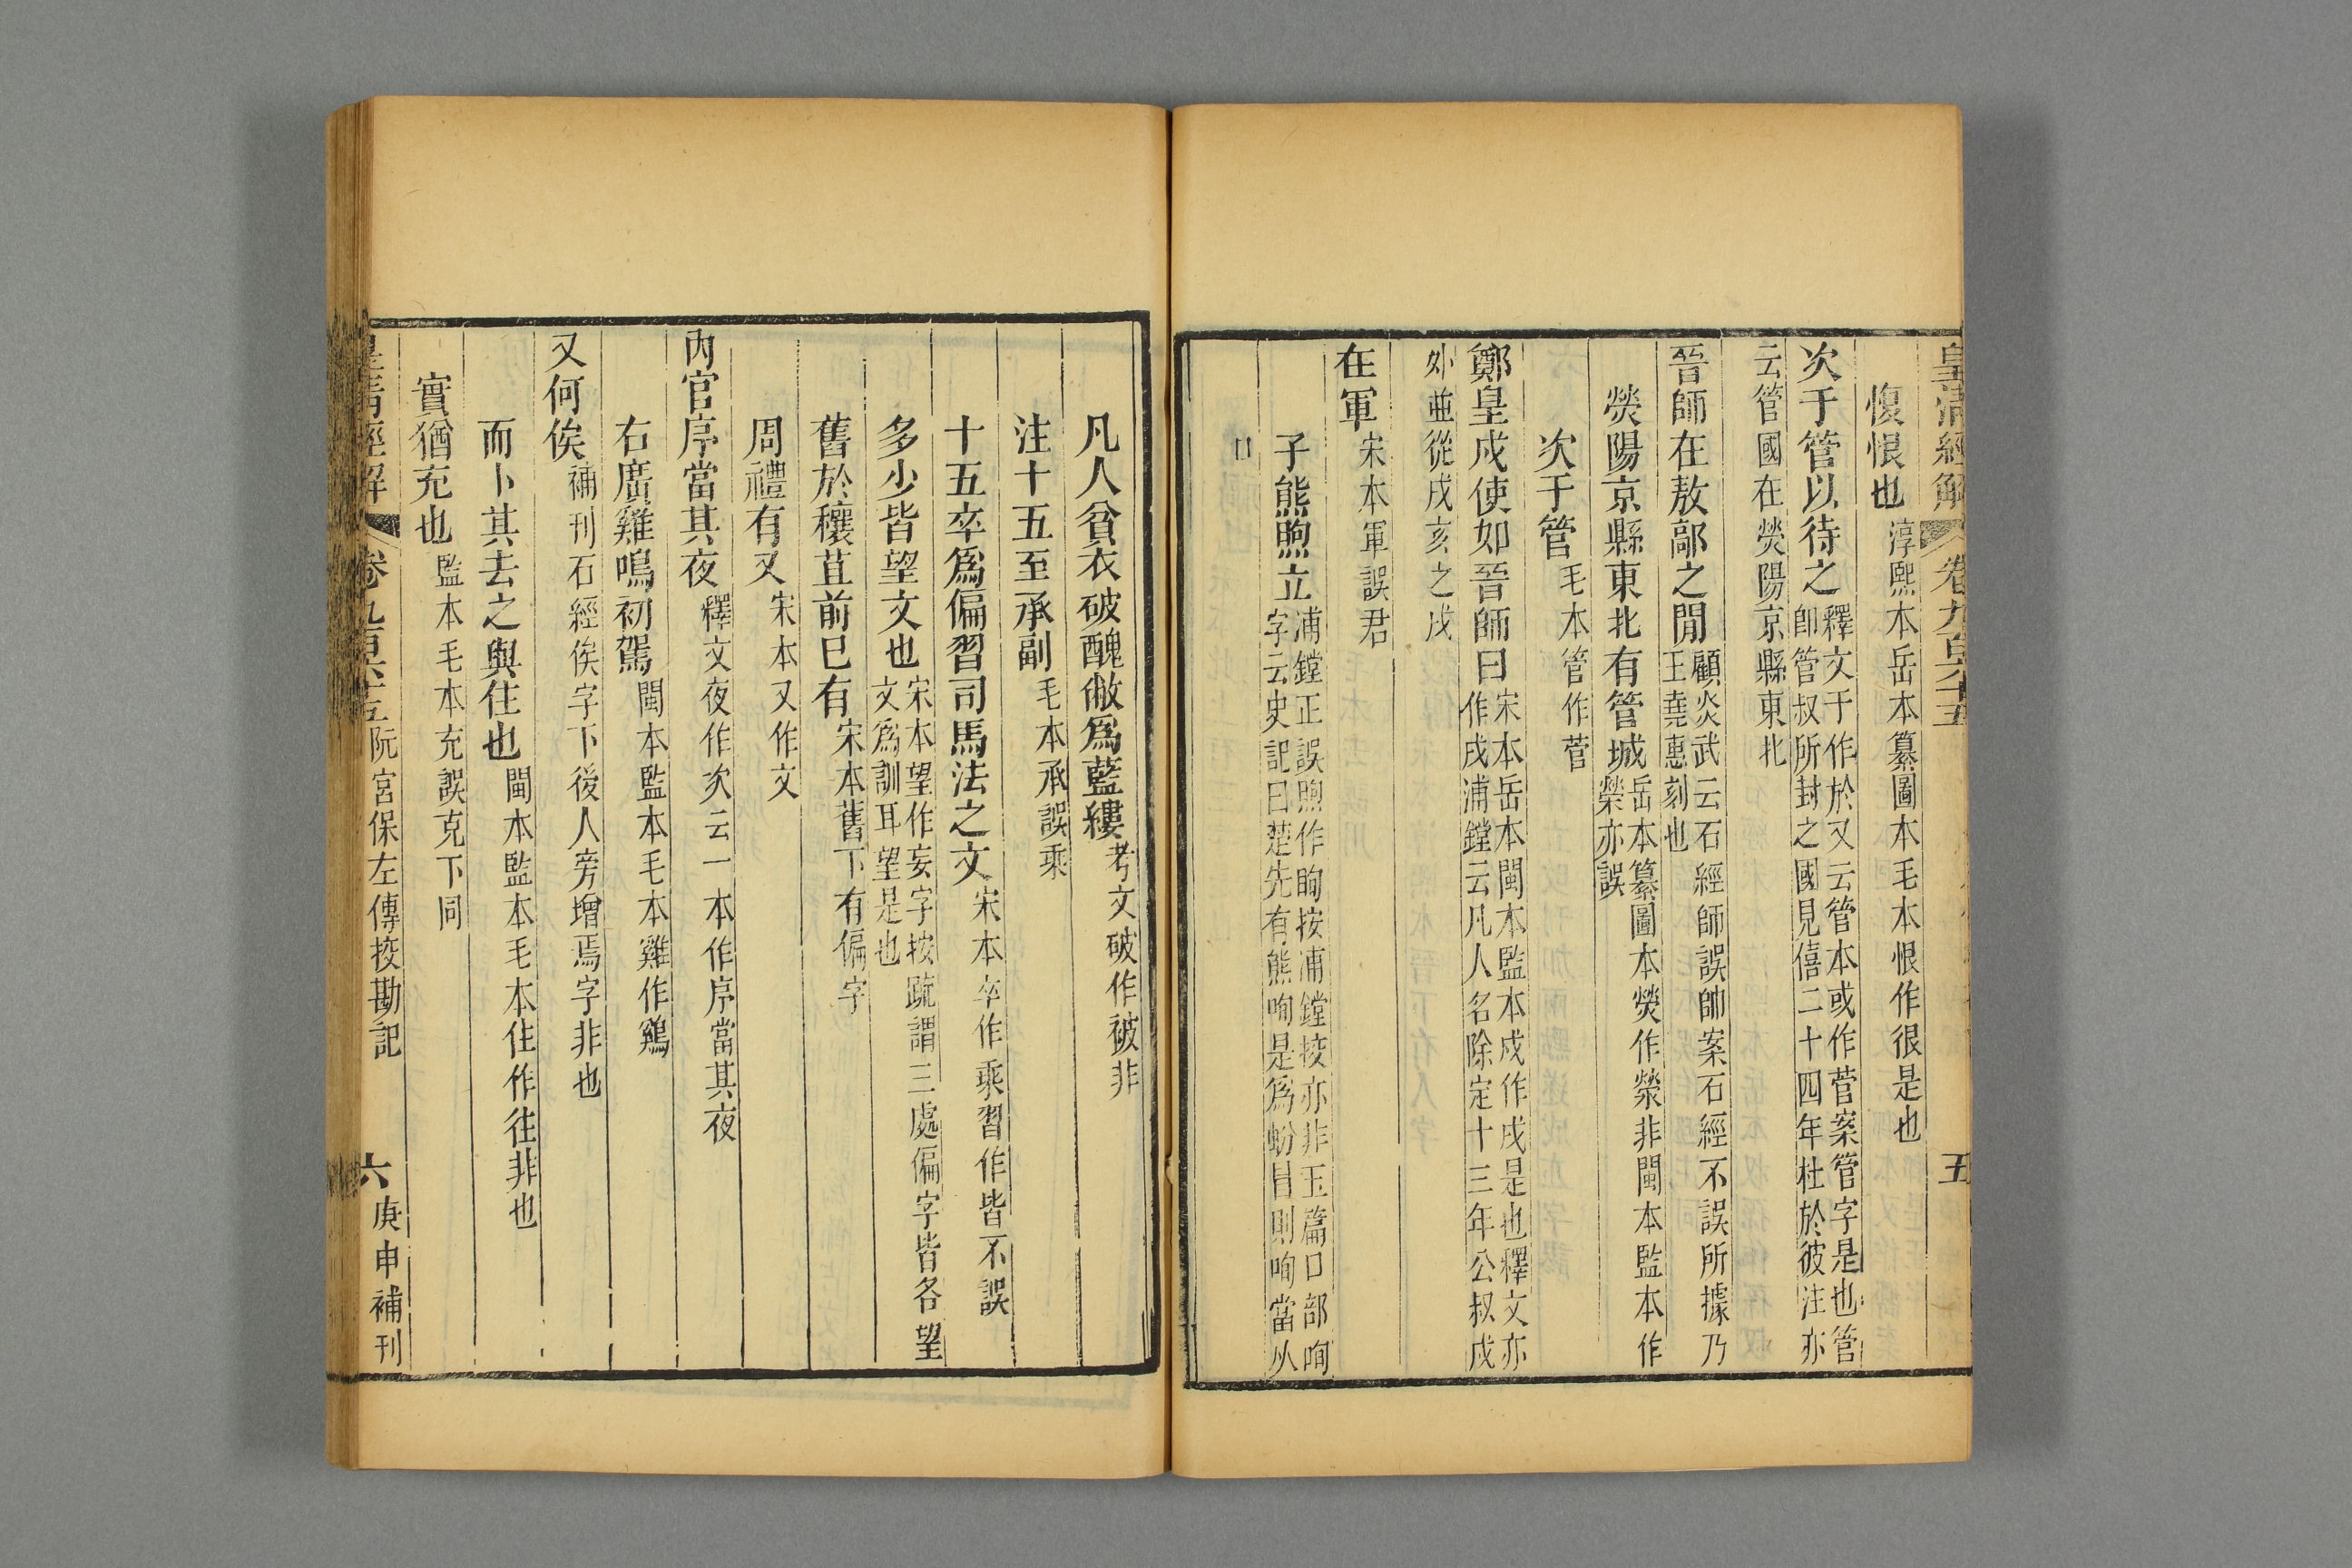 皇清經解 卷九百五十五 五
愎恨也淳熙本岳本纂圖本毛本恨作很是也
次于管以待之釋文于作於又云管本或作菅案管字是也管
卽管叔所封之國見僖二十四年杜於彼注亦
云管國在熒陽京縣東北
晉師在敖鄗之閒顧炎武云石經師誤帥案石經不誤所據乃
王堯惠刻也
熒陽京縣東北有管城岳本纂圖本熒作滎非閩本監本作
榮亦誤
次于管毛本管作菅
鄭皇戌使如晉師曰宋本岳本閩本監本戍作戌是也釋文亦
作戌浦鏜云凡人名除定十三年公叔戍
外並從戌亥之戌
在軍宋本軍誤君
子熊煦立浦鏜正誤煦作眴按浦鏜挍亦非玉篇口部呴
字云史記曰楚先有熊呴是爲蚡冒則呴當从
口
凡人貧衣破醜敝爲藍縷考文破作被非
注十五至承副毛本承誤乘
十五卒爲偏習司馬法之文宋本卒作乘習作皆不誤
多少皆望文也宋本望作妄字按疏謂三處偏字皆各望
文爲訓耳望是也
舊於穰苴前已有宋本舊下有偏字
周禮有又宋本又作文
內官序當其夜釋文夜作次云一本作序當其夜
右廣雞鳴初駕閩本監本毛本雞作鷄
又何俟補刊石經俟字下後人旁增焉字非也
而卜其去之與住也閩本監本毛本住作往非也
實猶充也監本毛本充誤克下同
皇清經解 卷九百五十五 阮宮保左傳挍勘記 六 庚申補刊